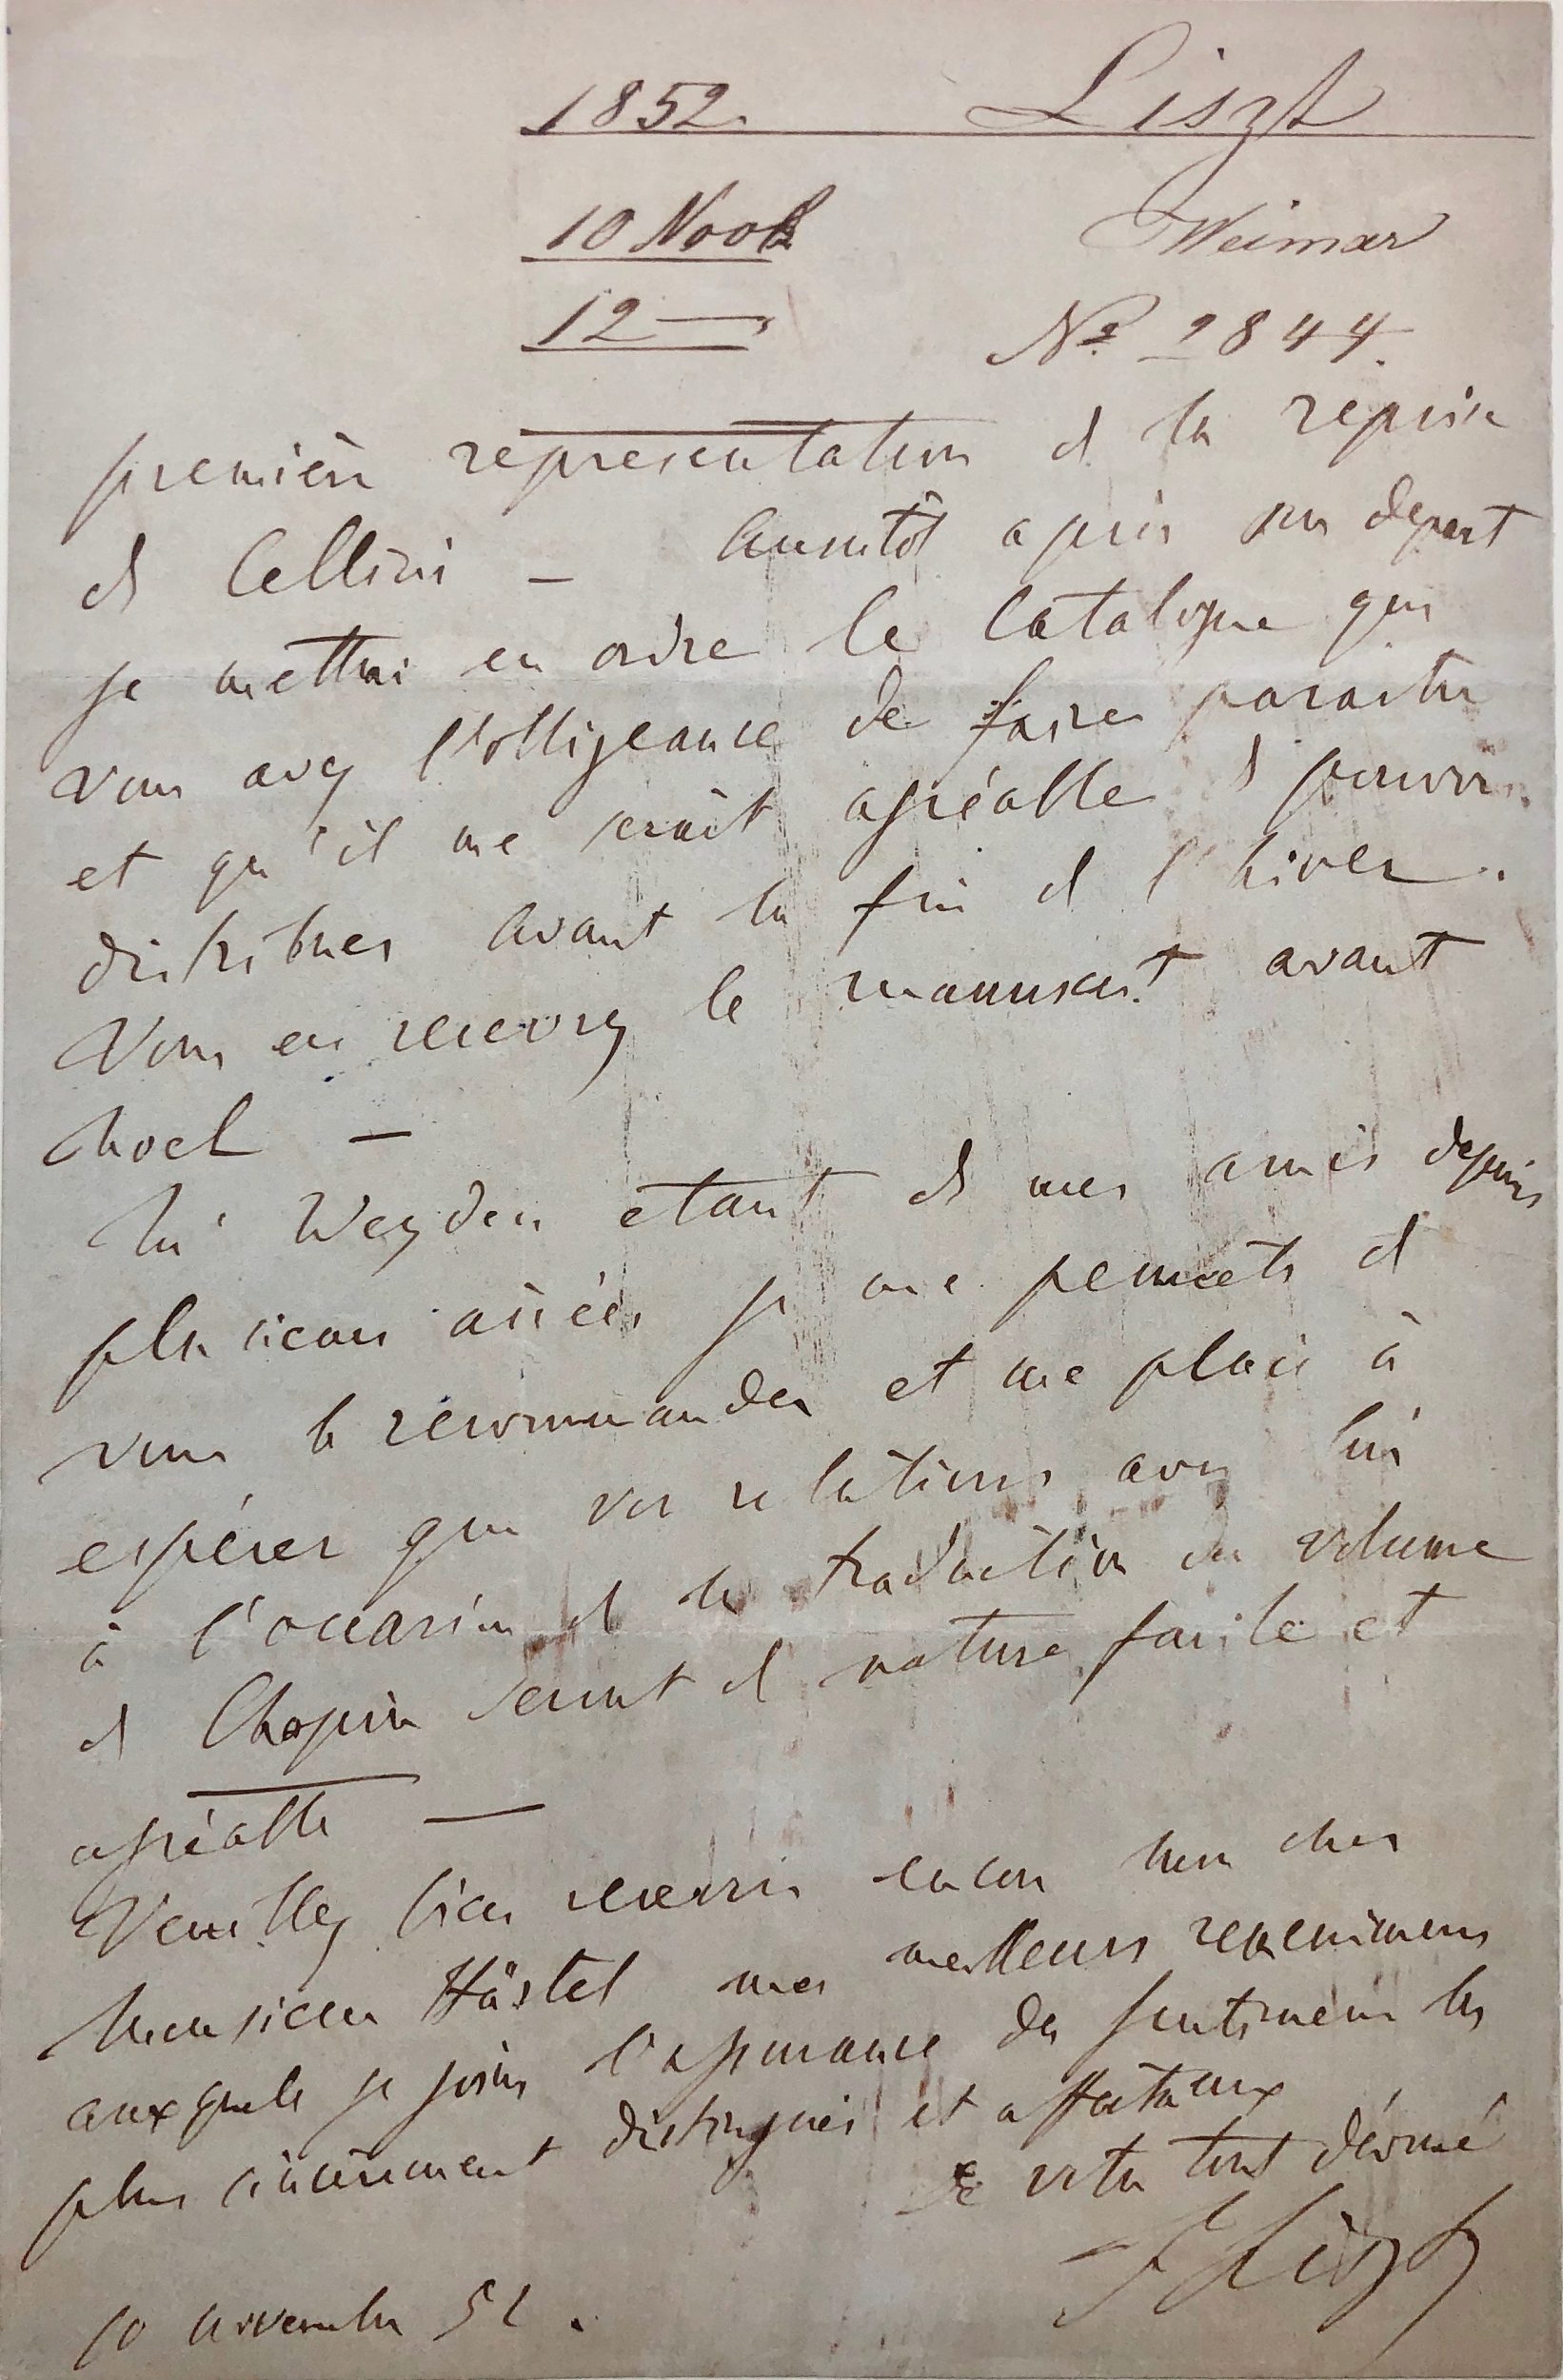 1852. Liszt
10 Novb Weimar
12 — No 2844.
première représentation de la reprise
de Cellini — Aussitôt après son depart
je mettrai en ordre le Catalogue que
vous avez l'obligeance de faire paraitre
et qu'il me serait agréable de pouvoir
distribuer avant la fin de l'hiver.
Vous en recevrez le manuscrit avant
Noel —
Mr Weyden etant de mes amis depuis
plusieurs années je me permets de
vous le recommander et me plais à
espérer que vos relations avec lui
à l'occasion de la traduction du volume
de Chopin seront de nature facile et
agréable —
Veuillez bien recevoir encore mon cher
Monsieur Härtel mes meilleurs remercimens
auxquels je joins l'assurance des sentimens les
plus sincèrement distingués et affectueux
de votre tout dévoué
F Liszt
10 novembre 52.